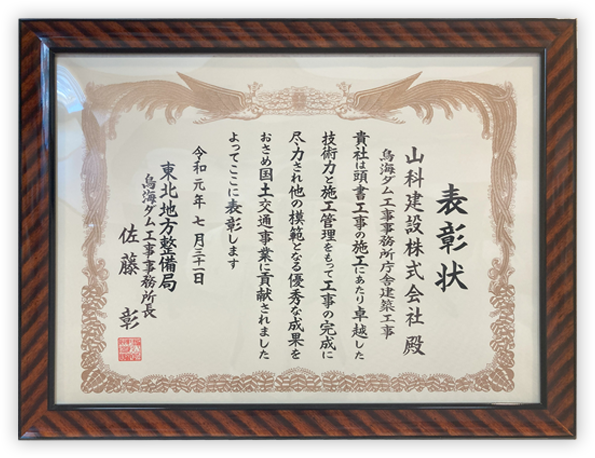 表彰状
山科建設株式会社 殿
鳥海ダム工事事務所庁舎建築工事
貴社は頭書工事の施工にあたり卓越した
技術力と施工管理をもって工事の完成に
尽力され他の模範となる優秀な成果を
おさめ国土交通事業に貢献されました
よってここに表彰します
令和元年七月三十一日
東北地方整備局
鳥海ダム工事事務所長
佐藤 彰